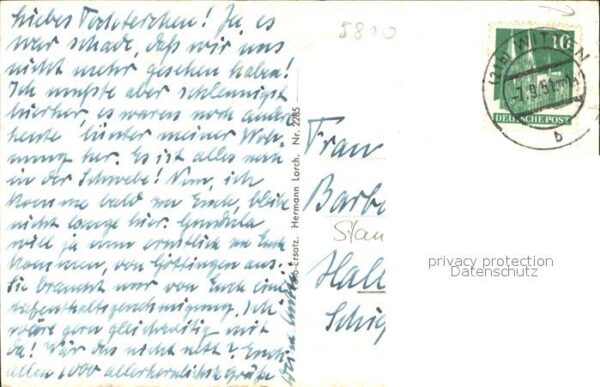 Liebes Tochterchen! Ja, es
war schade, daß wir uns
nicht mehr gesehen haben!
Ich mußte aber schleunigst
hierher, es waren noch andre
heute hinter meiner Woh-
nung her. Es ist alles noch
in der Schwebe! Nun, ich
komme bald zu Euch, bleibe
nicht lange hier. Gundula
will ja nun ernstlich zu Euch
kommen, von Göttingen aus.
Sie braucht nur von Euch eine
Aufenthaltsgenehmigung. Ich
wäre gern gleichzeitig mit
da! Wär das nicht nett? Euch
allen 1000 allerherzlichste Grüße
Foto-ersatz. Hermann Lorch. Nr. 2285
5810
Frau
Barb
Stau
Hal
Schie
10
DEUTSCHE POST
(21b) WITTEN
-7.9.51
b
privacy protection
Datenschutz